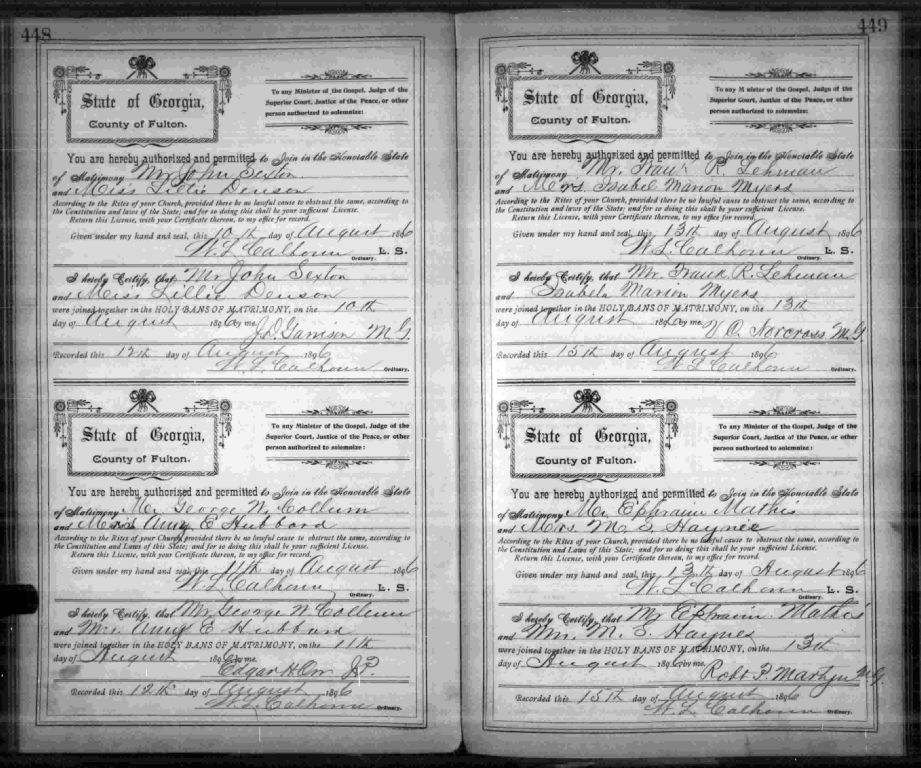 448
State of Georgia,
County of Fulton.
To any Minister of the Gospel, Judge of the
Superior Court, Justice of the Peace, or other
person authorized to solemnize:
You are hereby authorized and permitted to Join in the Honorable State
of Matrimony Mr John Sexton
and Miss Lillie Denson
According to the Rites of your Church, provided there be no lawful cause to obstruct the same, according to
the Constitution and laws of the State; and for so doing this shall be your sufficient License.
Return this License, with your Certificate thereon, to my office for record.
Given under my hand and seal, this 10th day of August 1896
W. L. Calhoun L. S.
Ordinary.
I hereby Certify, that Mr John Sexton
and Miss Lillie Denson
were joined together in the HOLY BANS OF MATRIMONY, on the 10th
day of August 1896 by me.
J. D. Garrison M. G.
Recorded this 12th day of August 1896
W. L. Calhoun Ordinary.
State of Georgia,
County of Fulton.
To any Minister of the Gospel, Judge of the
Superior Court, Justice of the Peace, or other
person authorized to solemnize:
You are hereby authorized and permitted to Join in the Honorable State
of Matrimony Mr George W. Collum
and Amy E Hubbard
According to the Rites of your Church, provided there be no lawful cause to obstruct the same, according to
the Constitution and Laws of this State; and for so doing this shall be your sufficient License.
Return this License, with your Certificate thereon, to my office for record.
Given under my hand and seal, this 11th day of August 1896
W. L. Calhoun L. S.
Ordinary.
I hereby Certify, that Mr George W Collum
and Amy E Hubbard
were joined together in the HOLY BANS OF MATRIMONY, on the 11th
day of August 1896 by me.
Edgar H. Orr J. P.
Recorded this 12th day of August 1896
W. L. Calhoun Ordinary.
449
State of Georgia,
County of Fulton.
To any Minister of the Gospel, Judge of the
Superior Court, Justice of the Peace, or other
person authorized to solemnize:
You are hereby authorized and permitted to Join in the Honorable State
of Matrimony Mr. Frank R. Lehman
and Mrs. Isabel Marion Myers
According to the Rites of your Church, provided there be no lawful cause to obstruct the same, according to
the Constitution and laws of the State; and for so doing this shall be your sufficient License.
Return this License, with your Certificate thereon, to my office for record.
Given under my hand and seal, this 13th day of August 1896
W. L. Calhoun L. S.
Ordinary.
I hereby Certify, that Mr. Frank R. Lehman
and Isabela Marion Myers
were joined together in the HOLY BANS OF MATRIMONY, on the 13th
day of August 1896 by me V. O. Norcross M. G.
Recorded this 15th day of August 1896
W. L. Calhoun Ordinary.
State of Georgia,
County of Fulton.
To any Minister of the Gospel, Judge of the
Superior Court, Justice of the Peace, or other
person authorized to solemnize:
You are hereby authorized and permitted to Join in the Honorable State
of Matrimony Mr Ephraim Mathis
and Mrs. M. S. Haynes
According to the Rites of your Church, provided there be no lawful cause to obstruct the same, according to
the Constitution and Laws of this State; and for so doing this shall be your sufficient License.
Return this License, with your Certificate thereon, to my office for record.
Given under my hand and seal, this 13th day of August 1896
W. L. Calhoun L. S.
Ordinary.
I hereby Certify, that Mr Ephraim Mathis
and Mrs. M. S. Haynes
were joined together in the HOLY BANS OF MATRIMONY, on the 13th
day of August 1896 by me
Robt F. M. G.
Recorded this 15th day of August 1896
W. L. Calhoun Ordinary.